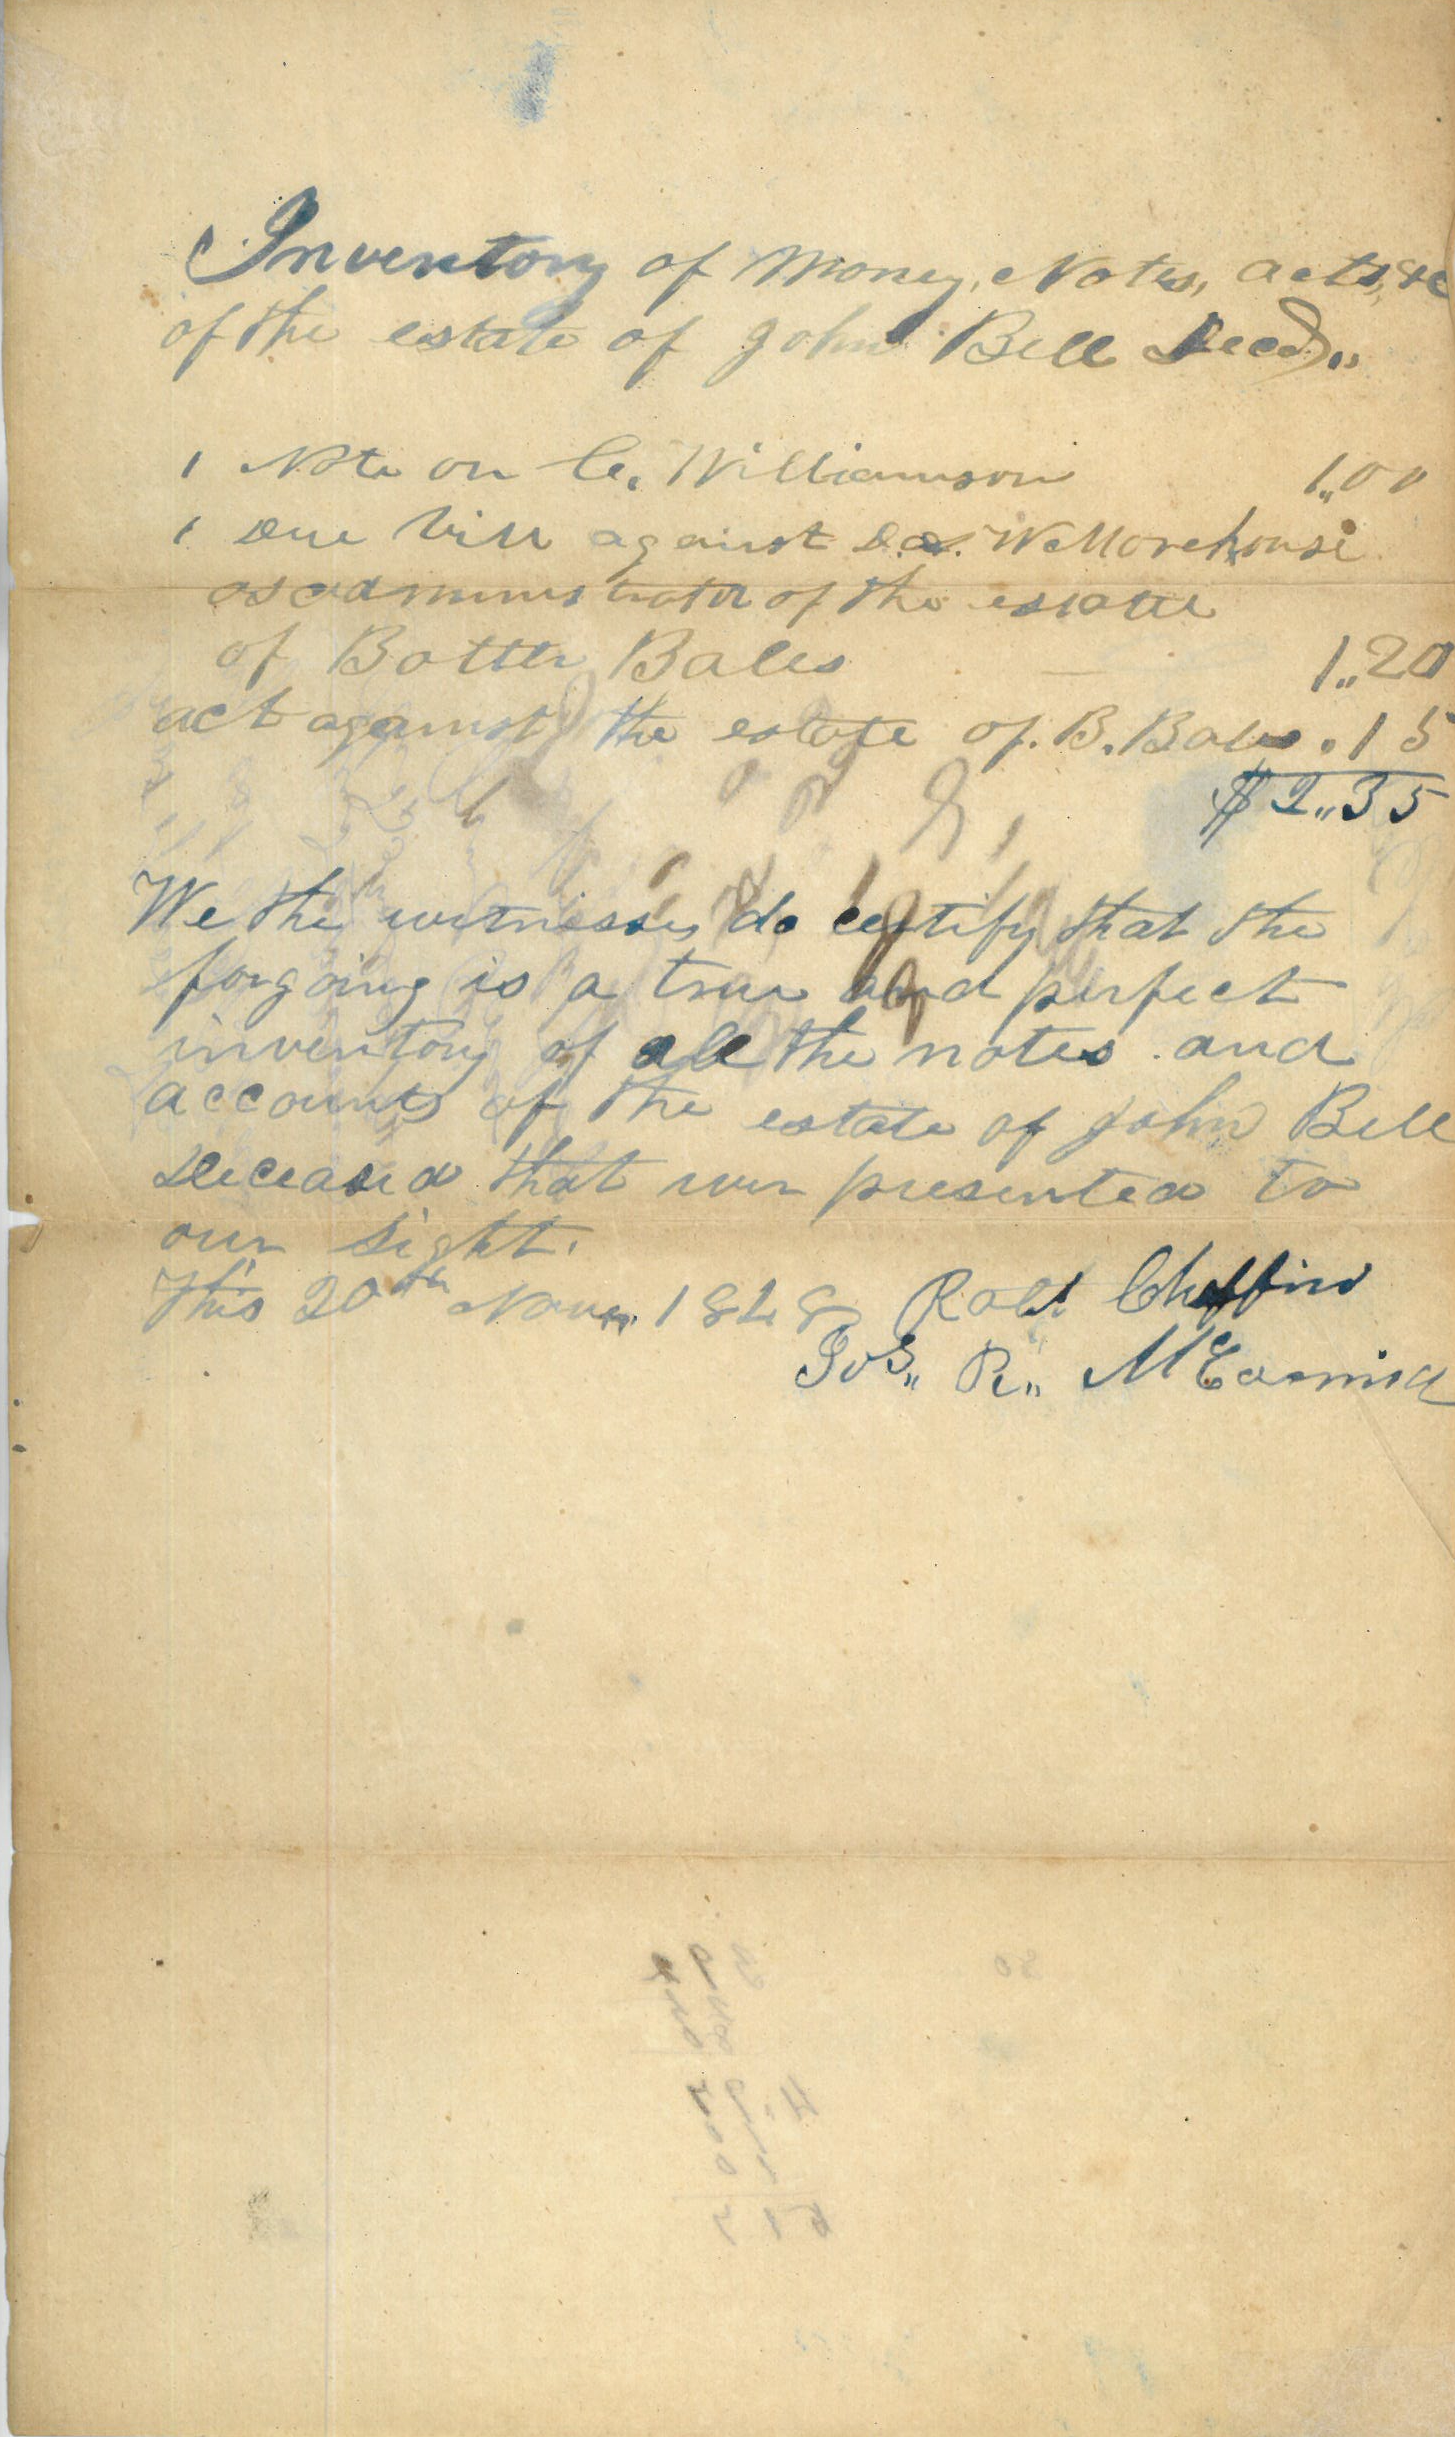 Inventory of Money, Notes, acts, &c
of the estate of John Bell Decd,,
1 Note on C. Williamson 1,,00
1 Due bill against W Morehouse
as administrator of the estate
of Botter Bales 1,,20
act against the estate of. B. Bales .15
$2,,35
We the witnesses do certify that the
forgoing is a true and perfect
inventory of all the notes and
accounts of the estate of John Bell
Deceased that wer presented to
our sight.
This 20th Novm. 1848 Robt Cheffin
Jos,, R,, McCormick